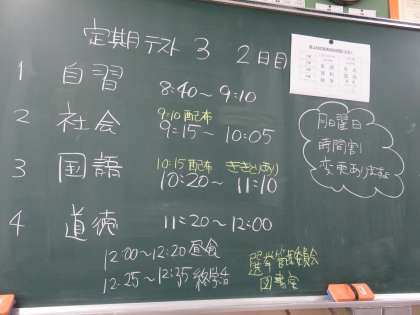 定期テスト 3 2日目
1 自習 8:40〜9:10
9:10配布
2 社会 9:15〜10:05
10:15配布 ききとりあり
3 国語 10:20〜11:10
4 道徳 11:20〜12:00
12:00〜12:20 昼食
12:25〜12:35 終学活
選挙管理委員会
図書室
月曜日
時間割
変更あります